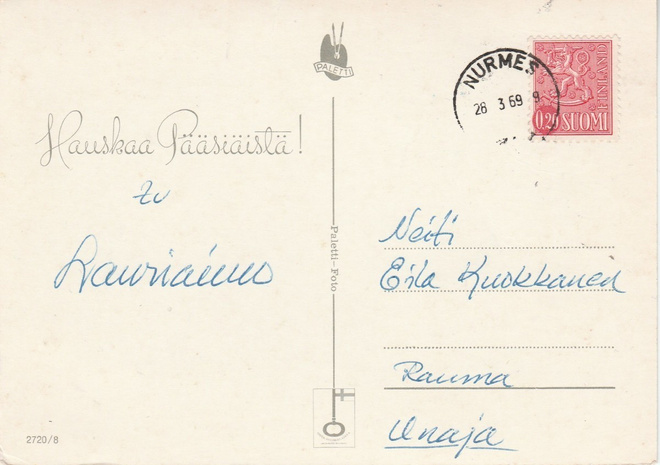 PALETTI
NURMES
28 3 69 9
FINLAND
0,20 SUOMI
Hauskaa Pääsiäistä!
Paletti-Foto
Neiti
Eila Kuokkanen
Rauma
Unaja
2720/8